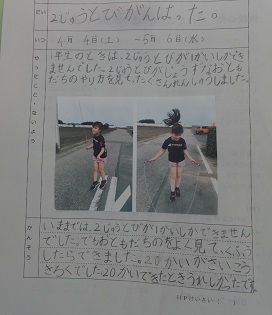 だい
2じゅうとびがんばった。
いつ
4月4日(土)~5月6日(水)
やったこと・ないよう
1年生のときは、2じゅうとびが1かいしかできませんでした。2じゅうとびがじょうずなおともだちのやり方を見て、たくさんれんしゅうしました。
かんそう
いままでは、2じゅうとびが1かいしかできませんでした。でもおともだちのをよく見て、くふうしたらできました。20かいがさいこうきろくでした20かいできたときうれしかったです。